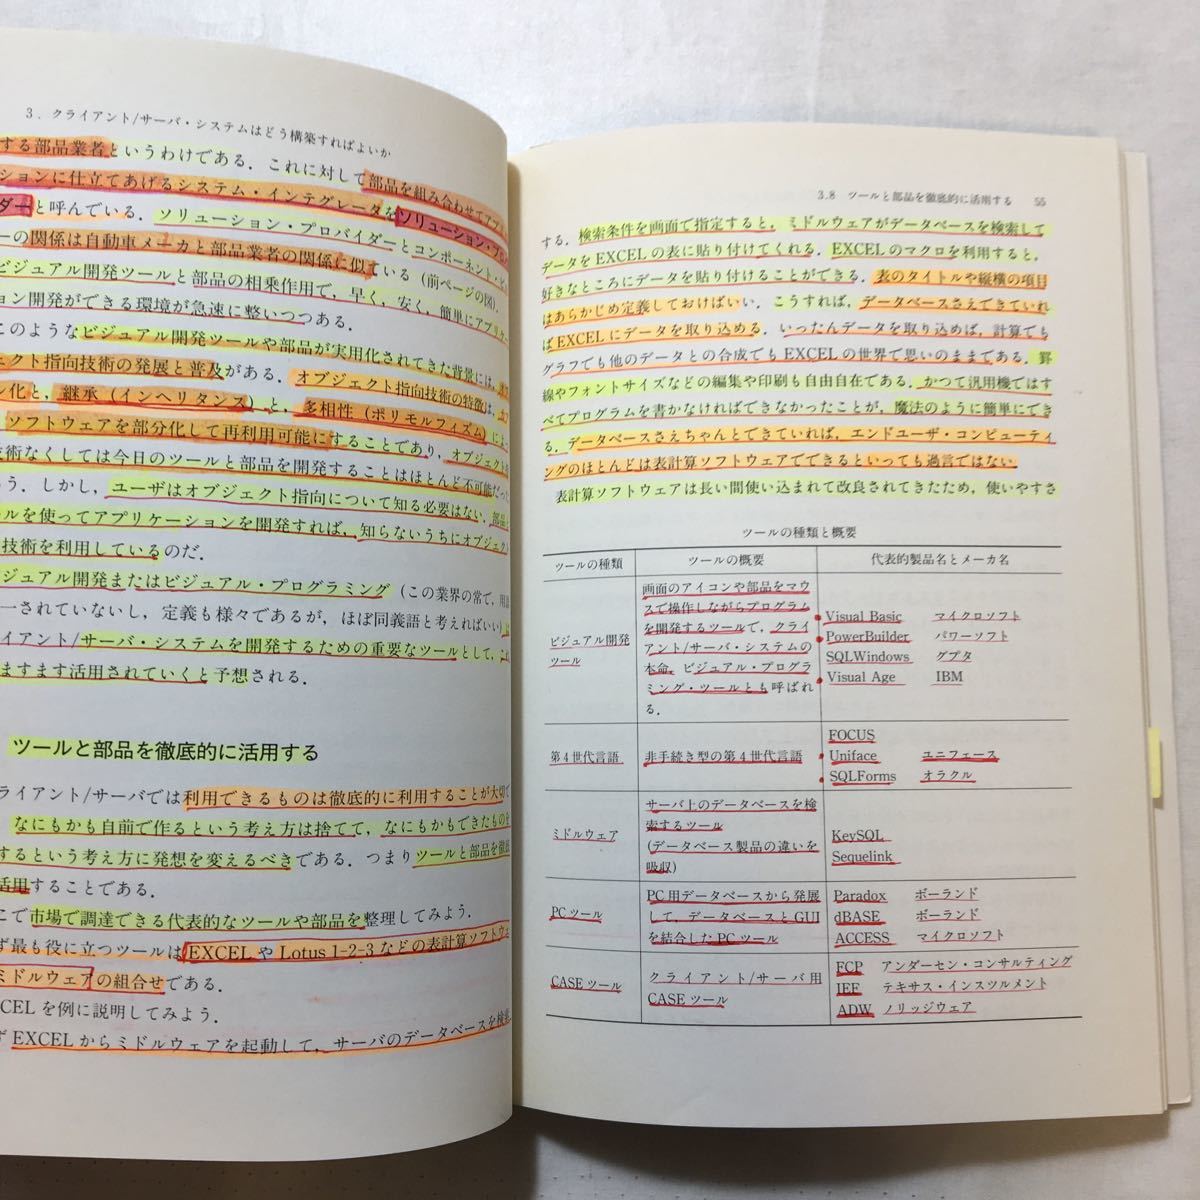 3. クライアント/サーバ・システムはどう構築すればよいか
する部品業者というわけである．これに対して部品を組み合わせてアプ
ションに仕立てあげるシステム・インテグレータをソリューション・プロ
ダーと呼んでいる．ソリューション・プロバイダーとコンポーネント・
ーの関係は自動車メーカと部品業者の関係に似ている（前ページの図）．
ビジュアル開発ツールと部品の相乗作用で，早く，安く，簡単にアプリケ
ョン開発ができる環境が急速に整いつつある．
このようなビジュアル開発ツールや部品が実用化されてきた背景には，
ジェクト指向技術の発展と普及がある．オブジェクト指向技術の特徴は，
ル化と，継承（インヘリタンス）と，多相性（ポリモルフィズム）に
ソフトウェアを部分化して再利用可能にすることであり，オブジェクト
技術なくしては今日のツールと部品を開発することはほとんど不可能だっ
う．しかし，ユーザはオブジェクト指向について知る必要はない．部品
ルを使ってアプリケーションを開発すれば，知らないうちにオブジェク
技術を利用しているのだ．
ジュアル開発またはビジュアル・プログラミング（この業界の常で，用語
一されていないし，定義も様々であるが，ほぼ同義語と考えればいい）
イアント/サーバ・システムを開発するための重要なツールとして，これ
ますます活用されていくと予想される．
ツールと部品を徹底的に活用する
ライアント/サーバでは利用できるものは徹底的に利用することが大切で
なにもかも自前で作るという考え方は捨てて，なにもかもできたものを
するという考え方に発想を変えるべきである．つまりツールと部品を徹底
活用することである．
こで市場で調達できる代表的なツールや部品を整理してみよう．
ず最も役に立つツールはEXCELやLotus 1-2-3などの表計算ソフトウェ
ミドルウェアの組合せである．
CELを例に説明してみよう．
ずEXCELからミドルウェアを起動して，サーバのデータベースを検索
3.8 ツールと部品を徹底的に活用する 55
する．検索条件を画面で指定すると，ミドルウェアがデータベースを検索して
データをEXCELの表に貼り付けてくれる．EXCELのマクロを利用すると，
好きなところにデータを貼り付けることができる．表のタイトルや縦横の項目
はあらかじめ定義しておけばいい．こうすれば，データベースさえできていれ
ばEXCELにデータを取り込める．いったんデータを取り込めば，計算でも
グラフでも他のデータとの合成でもEXCELの世界で思いのままである．罫
線やフォントサイズなどの編集や印刷も自由自在である．かつて汎用機ではす
べてプログラムを書かなければできなかったことが，魔法のように簡単にでき
る．データベースさえちゃんとできていれば，エンドユーザ・コンピューティ
ングのほとんどは表計算ソフトウェアでできるといっても過言ではない．
表計算ソフトウェアは長い間使い込まれて改良されてきたため，使いやすさ
ツールの種類と概要
ツールの種類 ツールの概要 代表的製品名とメーカ名
ビジュアル開発
ツール
画面のアイコンや部品をマウ
スで操作しながらプログラム
を開発するツールで，クライ
アント/サーバ・システムの
本命．ビジュアル・プログラ
ミング・ツールとも呼ばれ
る．
Visual Basic マイクロソフト
PowerBuilder パワーソフト
SQLWindows グプタ
Visual Age IBM
第4世代言語 非手続き型の第4世代言語
FOCUS
Uniface ユニフェース
SQLForms オラクル
ミドルウェア
サーバ上のデータベースを検
索するツール
（データベース製品の違いを
吸収）
KeySQL
Sequelink
PCツール
PC用データベースから発展
して，データベースとGUI
を結合したPCツール
Paradox ボーランド
dBASE ボーランド
ACCESS マイクロソフト
CASEツール
クライアント/サーバ用
CASEツール
FCP アンダーセン・コンサルティング
IEF テキサス・インスツルメント
ADW ノリッジウェア